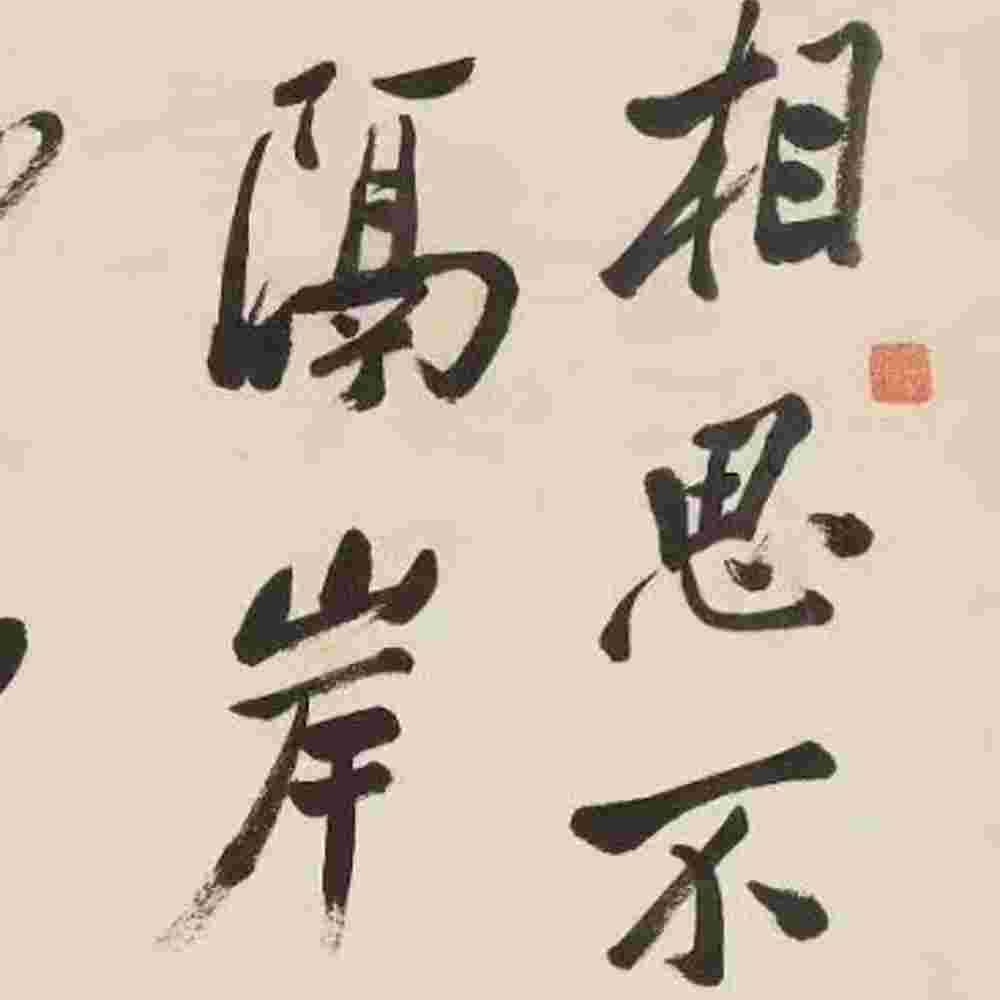 相思不
隔岸